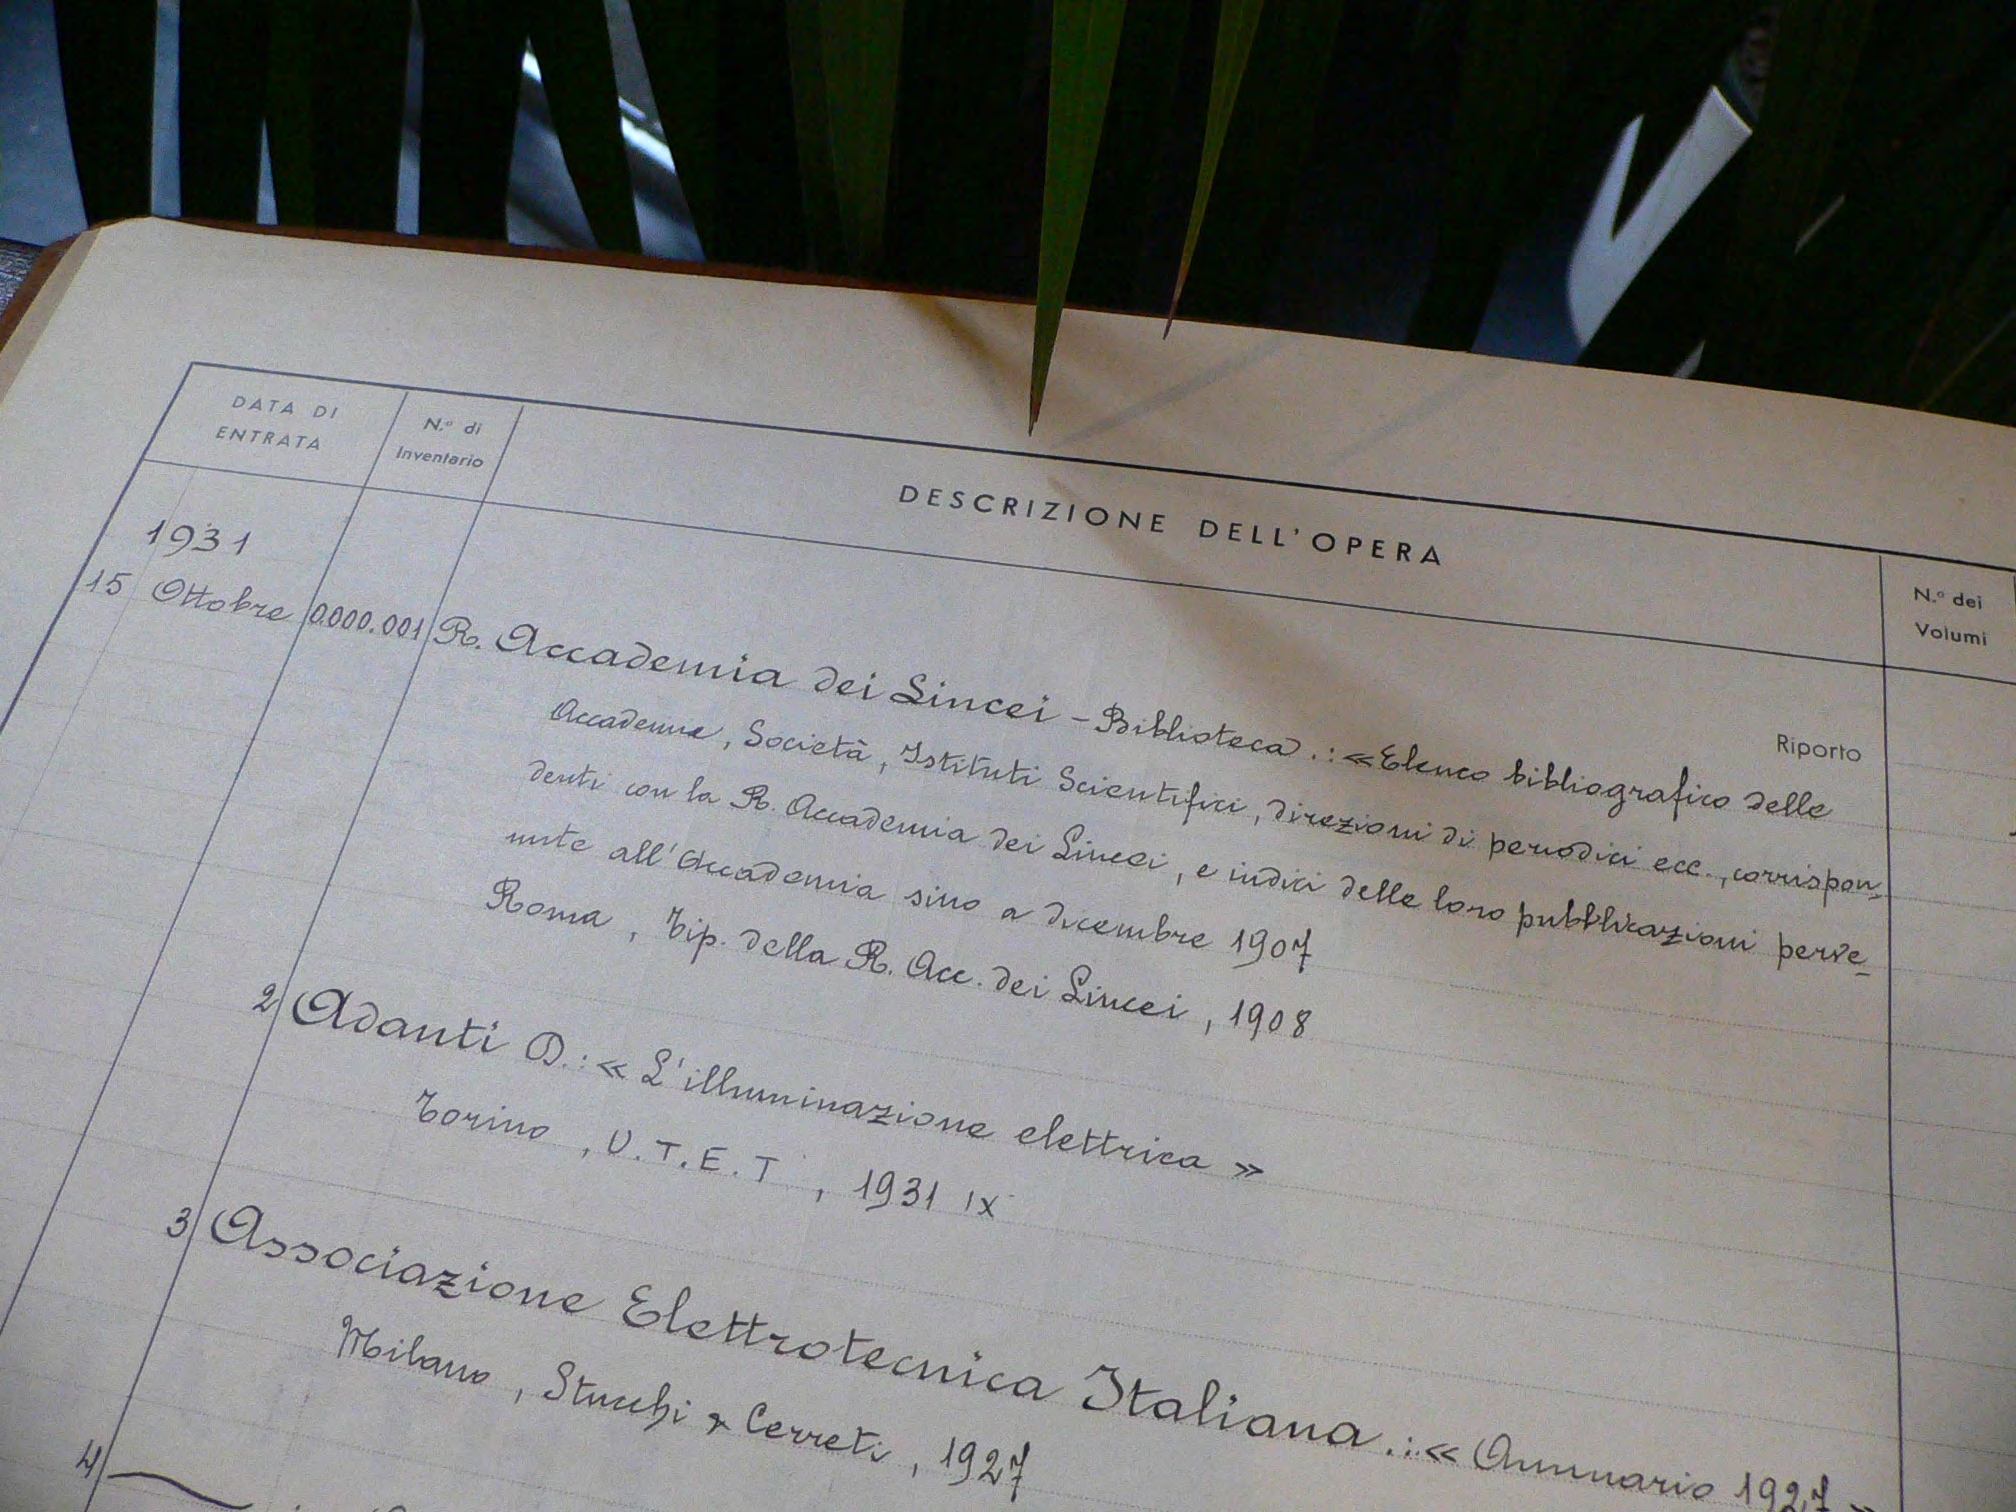 DATA DI
ENTRATA
N.º di
Inventario
DESCRIZIONE DELL'OPERA
N.º dei
Volumi
Riporto
1931
15 Ottobre 0.000.001 R. Accademia dei Lincei - Biblioteca.: «Elenco bibliografico delle
Accademie, Società, Istituti Scientifici, direzioni di periodici ecc., corrispon-
denti con la R. Accademia dei Lincei, e indici delle loro pubblicazioni perve-
nute all'Accademia sino a dicembre 1907
Roma, Tip. della R. Acc. dei Lincei, 1908
2 Adanti D.: « L'illuminazione elettrica »
Torino, U.T.E.T, 1931 IX
3 Associazione Elettrotecnica Italiana.: « Annuario 1927 »
Milano, Stucchi & Cerreti, 1927
4